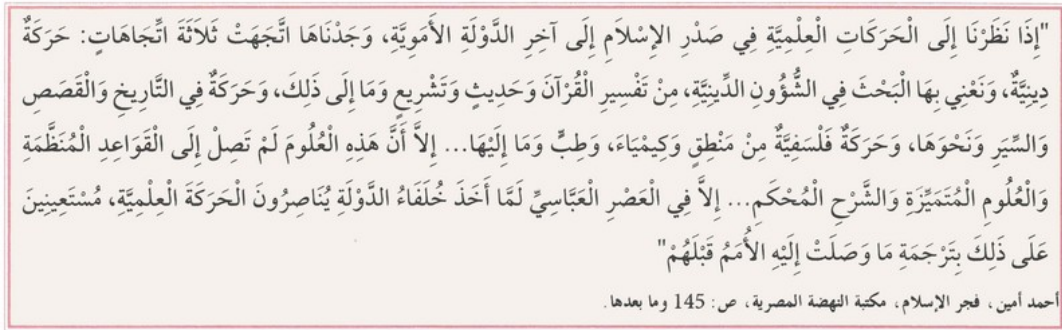 "إِذَا نَظَرْنَا إِلَى الْحَرَكَاتِ الْعِلْمِيَّةِ فِي صَدْرِ الإِسْلَامِ إِلَى آخِرِ الدَّوْلَةِ الأُمَوِيَّةِ، وَجَدْنَاهَا اتَّجَهَتْ ثَلَاثَةَ اتِّجَاهَاتٍ: حَرَكَةٌ
دِينِيَّةٌ، وَنَعْنِي بِهَا الْبَحْثَ فِي الشُّؤُونِ الدِّينِيَّةِ، مِنْ تَفْسِيرِ الْقُرْآنَ وَحَدِيثٍ وَتَشْرِيعٍ وَمَا إِلَى ذَلِكَ، وَحَرَكَةٌ فِي التَّارِيخِ وَالْقَصَصِ
وَالسِّيَرِ وَنَحْوَهَا، وَحَرَكَةٌ فَلْسَفِيَّةٌ مِنْ مَنْطِقٍ وَكِيمْيَاءَ، وَطِبٍّ وَمَا إِلَيْهَا... إِلاَّ أَنَّ هَذِهِ الْعُلُومَ لَمْ تَصِلْ إِلَى الْقَوَاعِدِ الْمُنَظَّمَةِ
وَالْعُلُومِ الْمُتَمَيِّزَةِ وَالشَّرْحِ الْمُحْكَمِ... إِلاَّ فِي الْعَصْرِ الْعَبَّاسِيِّ لَمَّا أَخَذَ خُلَفَاءُ الدَّوْلَةِ يُنَاصِرُونَ الْحَرَكَةَ الْعِلْمِيَّةَ، مُسْتَعِينِينَ
عَلَى ذَلِكَ بِتَرْجَمَةِ مَا وَصَلَتْ إِلَيْهِ الأُمَمُ قَبْلَهُمْ"
أحمد أمين، فجر الإسلام، مكتبة النهضة المصرية، ص: 145 وما بعدها.